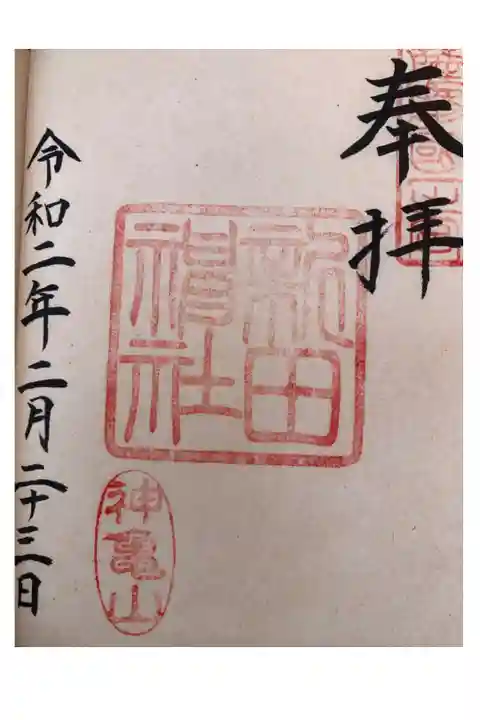 奉拝
新田
神社
神亀山
令和二年二月二十三日